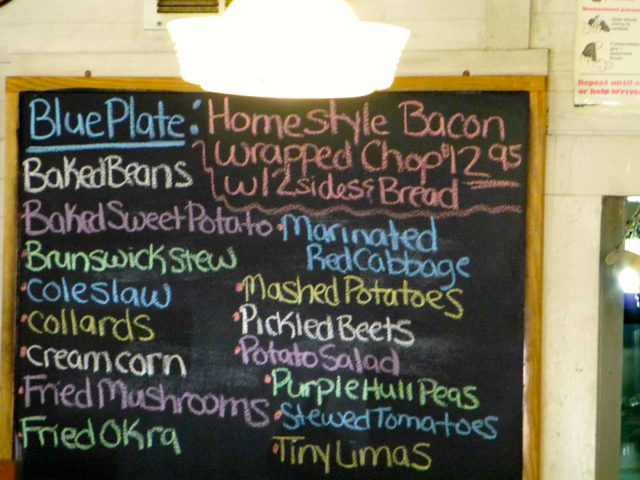 Blue Plate: Homestyle Bacon
Wrapped Chop $12.95
w/ 2 sides & Bread
Baked Beans
Baked Sweet Potato
Brunswick stew
Coleslaw
Collards
cream corn
Fried Mushrooms
Fried Okra
Marinated
Red Cabbage
Mashed Potatoes
Pickled Beets
Potato Salad
Purple Hull Peas
Stewed Tomatoes
Tiny Limas
Repeat until
or help arrives